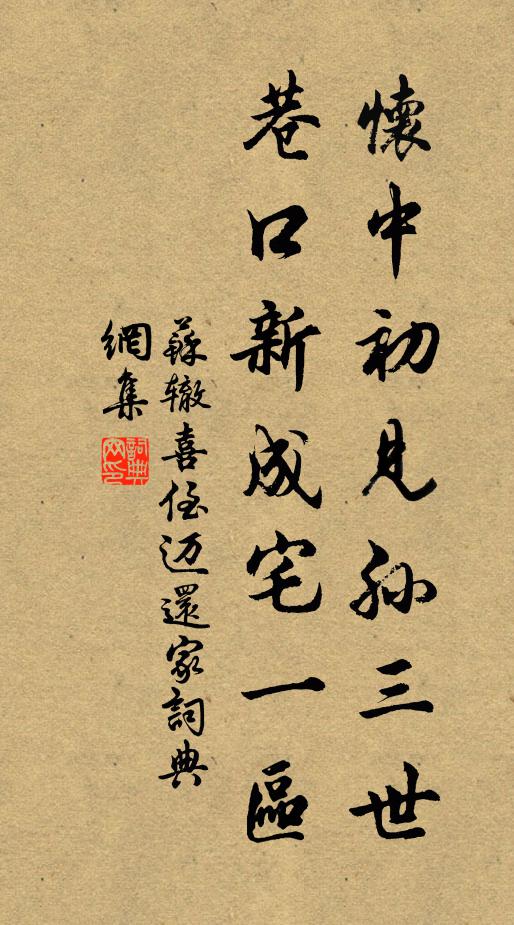 懷中初見孫三世
巷口新成宅一區
蘇轍喜侄迈還家詞典
網集
詞典
网印